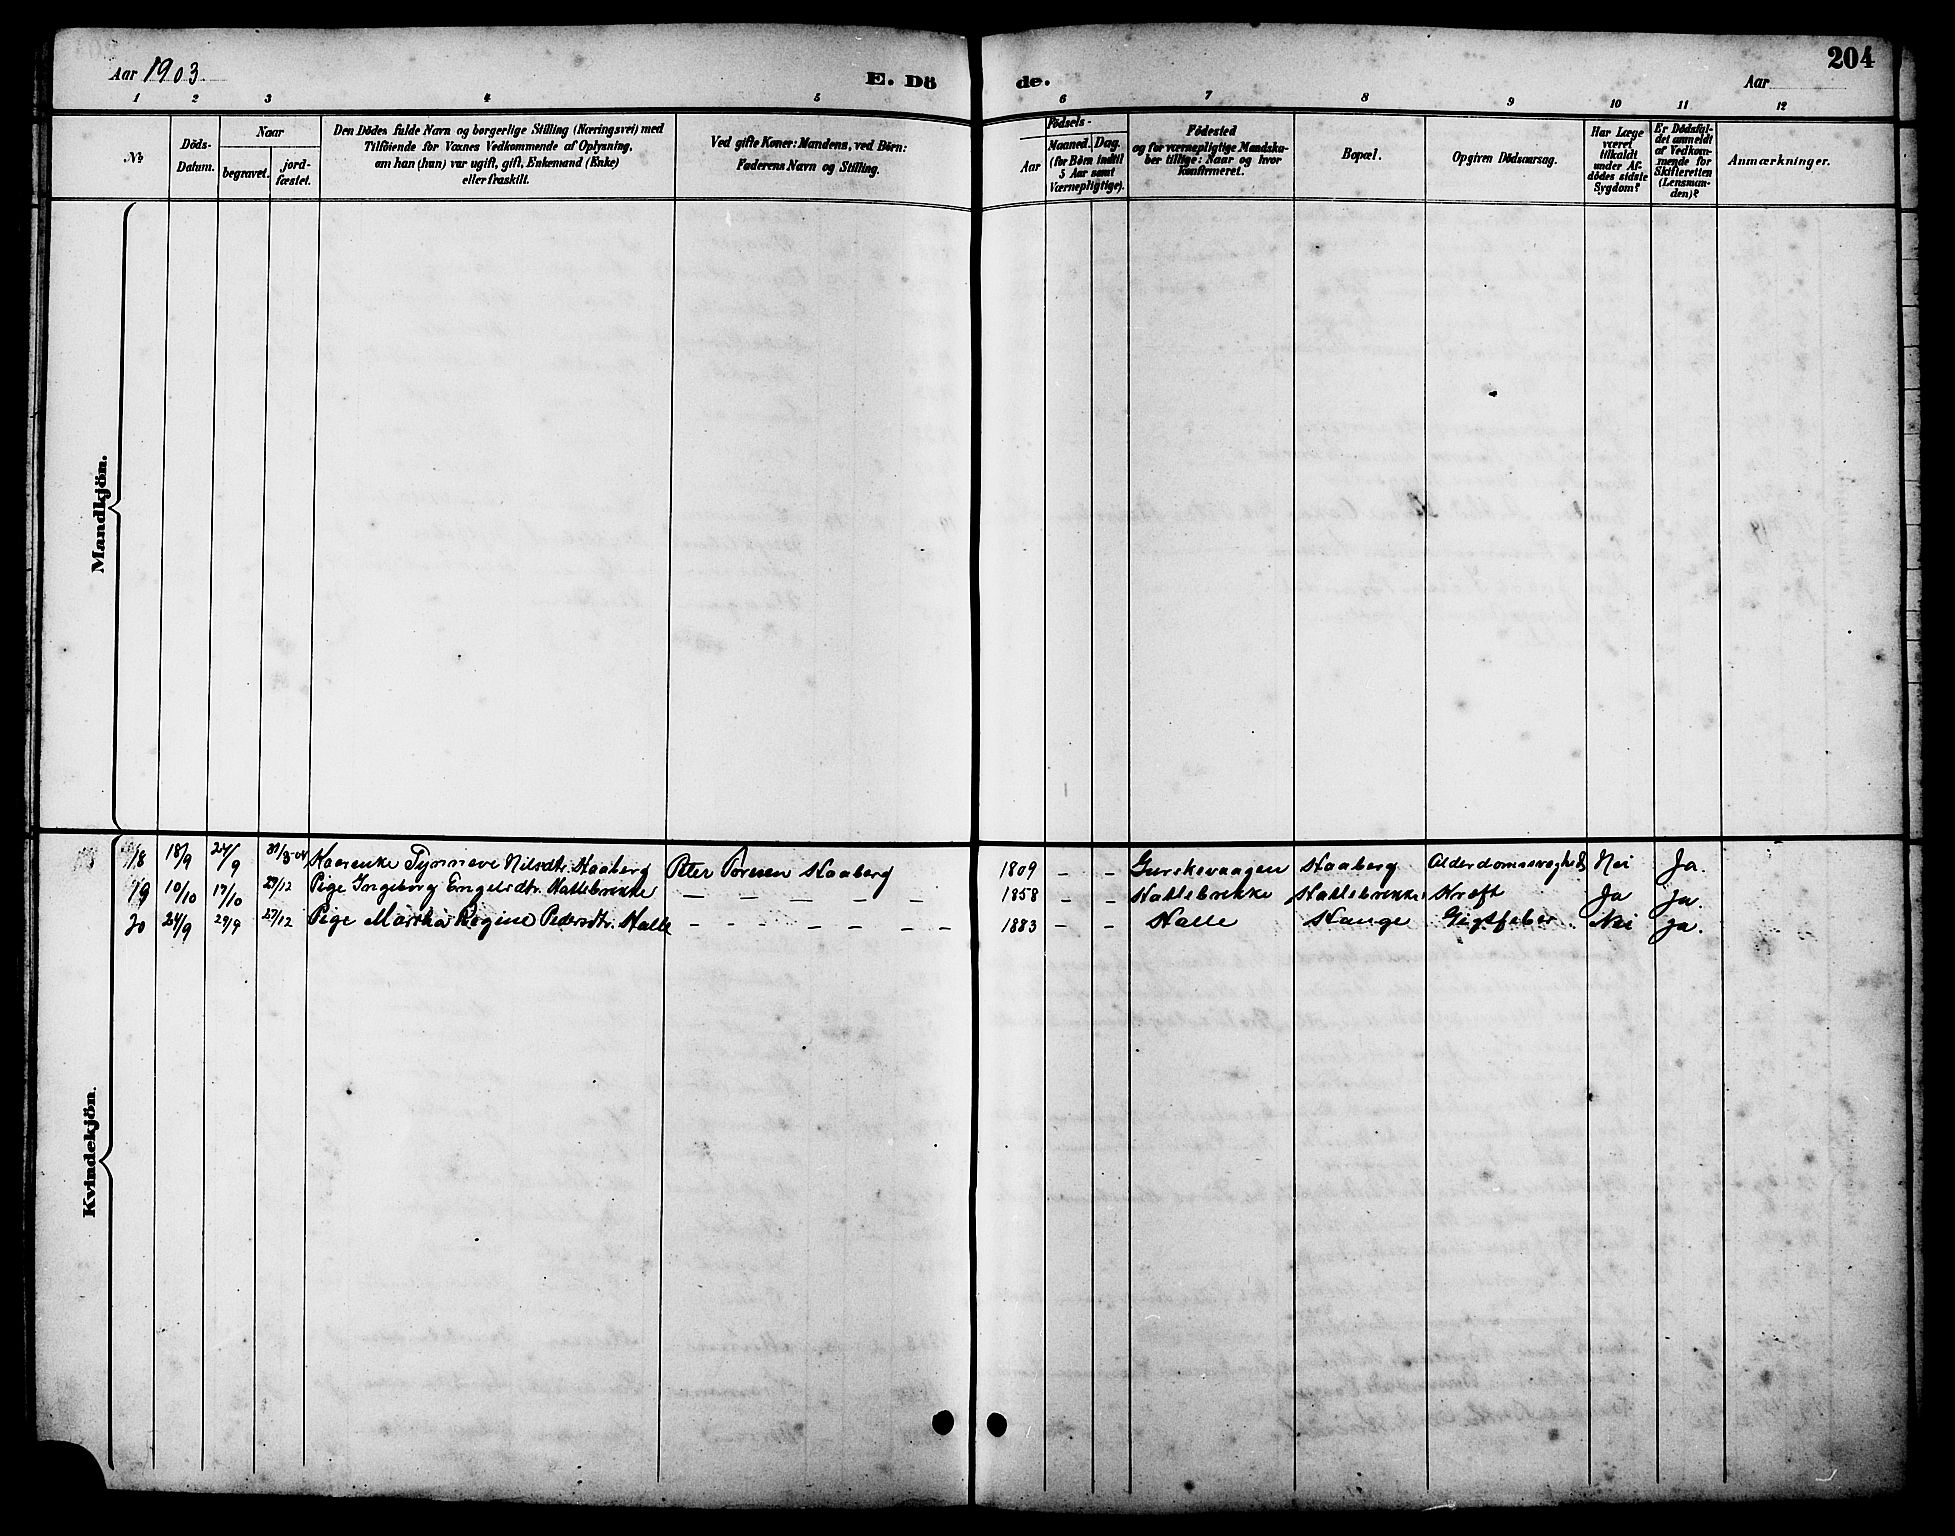 Aar 1903.
E. Dö de.
Aar
204
1 2 3 4 5 6 7 8 9 10 11 12
No
Döds-Datum.
Naar
begravet.
jord-fæstet.
Den Dödes fulde Navn og borgerlige Stilling (Næringsvei) med
Tilföiende for Voxnes Vedkommende af Oplysning,
om han (hun) var ugift, gift, Enkemand (Enke)
eller fraskilt.
Ved gifte Koner: Mandens, ved Börn:
Faderens Navn og Stilling.
Födsels-
Aar
Maaned. Dag.
(for Börn indtil
5 Aar samt
Værnepligtige).
Födested
og for værnepligtige Mandska-
ber tillige: Naar og hvor
konfirmeret.
Bopæl.
Opgiven Dödsaarsag.
Har Læge
været
tilkaldt
under Af-
dödes sidste
Sygdom?
Er Dödsfal-
det anmeldt
af Vedkom-
mende for
Skifteretten
(Lensman-
den)?
Anmærkninger.
Mandkjön.
Kvindekjön.
18 18/9 24/9 Kaarenke Synneve Nilsdtr. Haaberg Peter Toresen Haaberg 1809 – – Gurskevaagen Haaberg Alderdomssvaghed Nei Ja.
19 10/10 17/10 27/12 Pige Ingeborg Engelsdtr. Hatlebrekke – – – – – – – 1858 – – Hatlebrekke Hatlebrekke Kræft Ja Ja.
20 24/9 29/9 27/12 Pige Martha Regine Pedersdtr. Halle – – – – – – – 1883 – – Halle Hauge Gigtfeber Nei Ja.